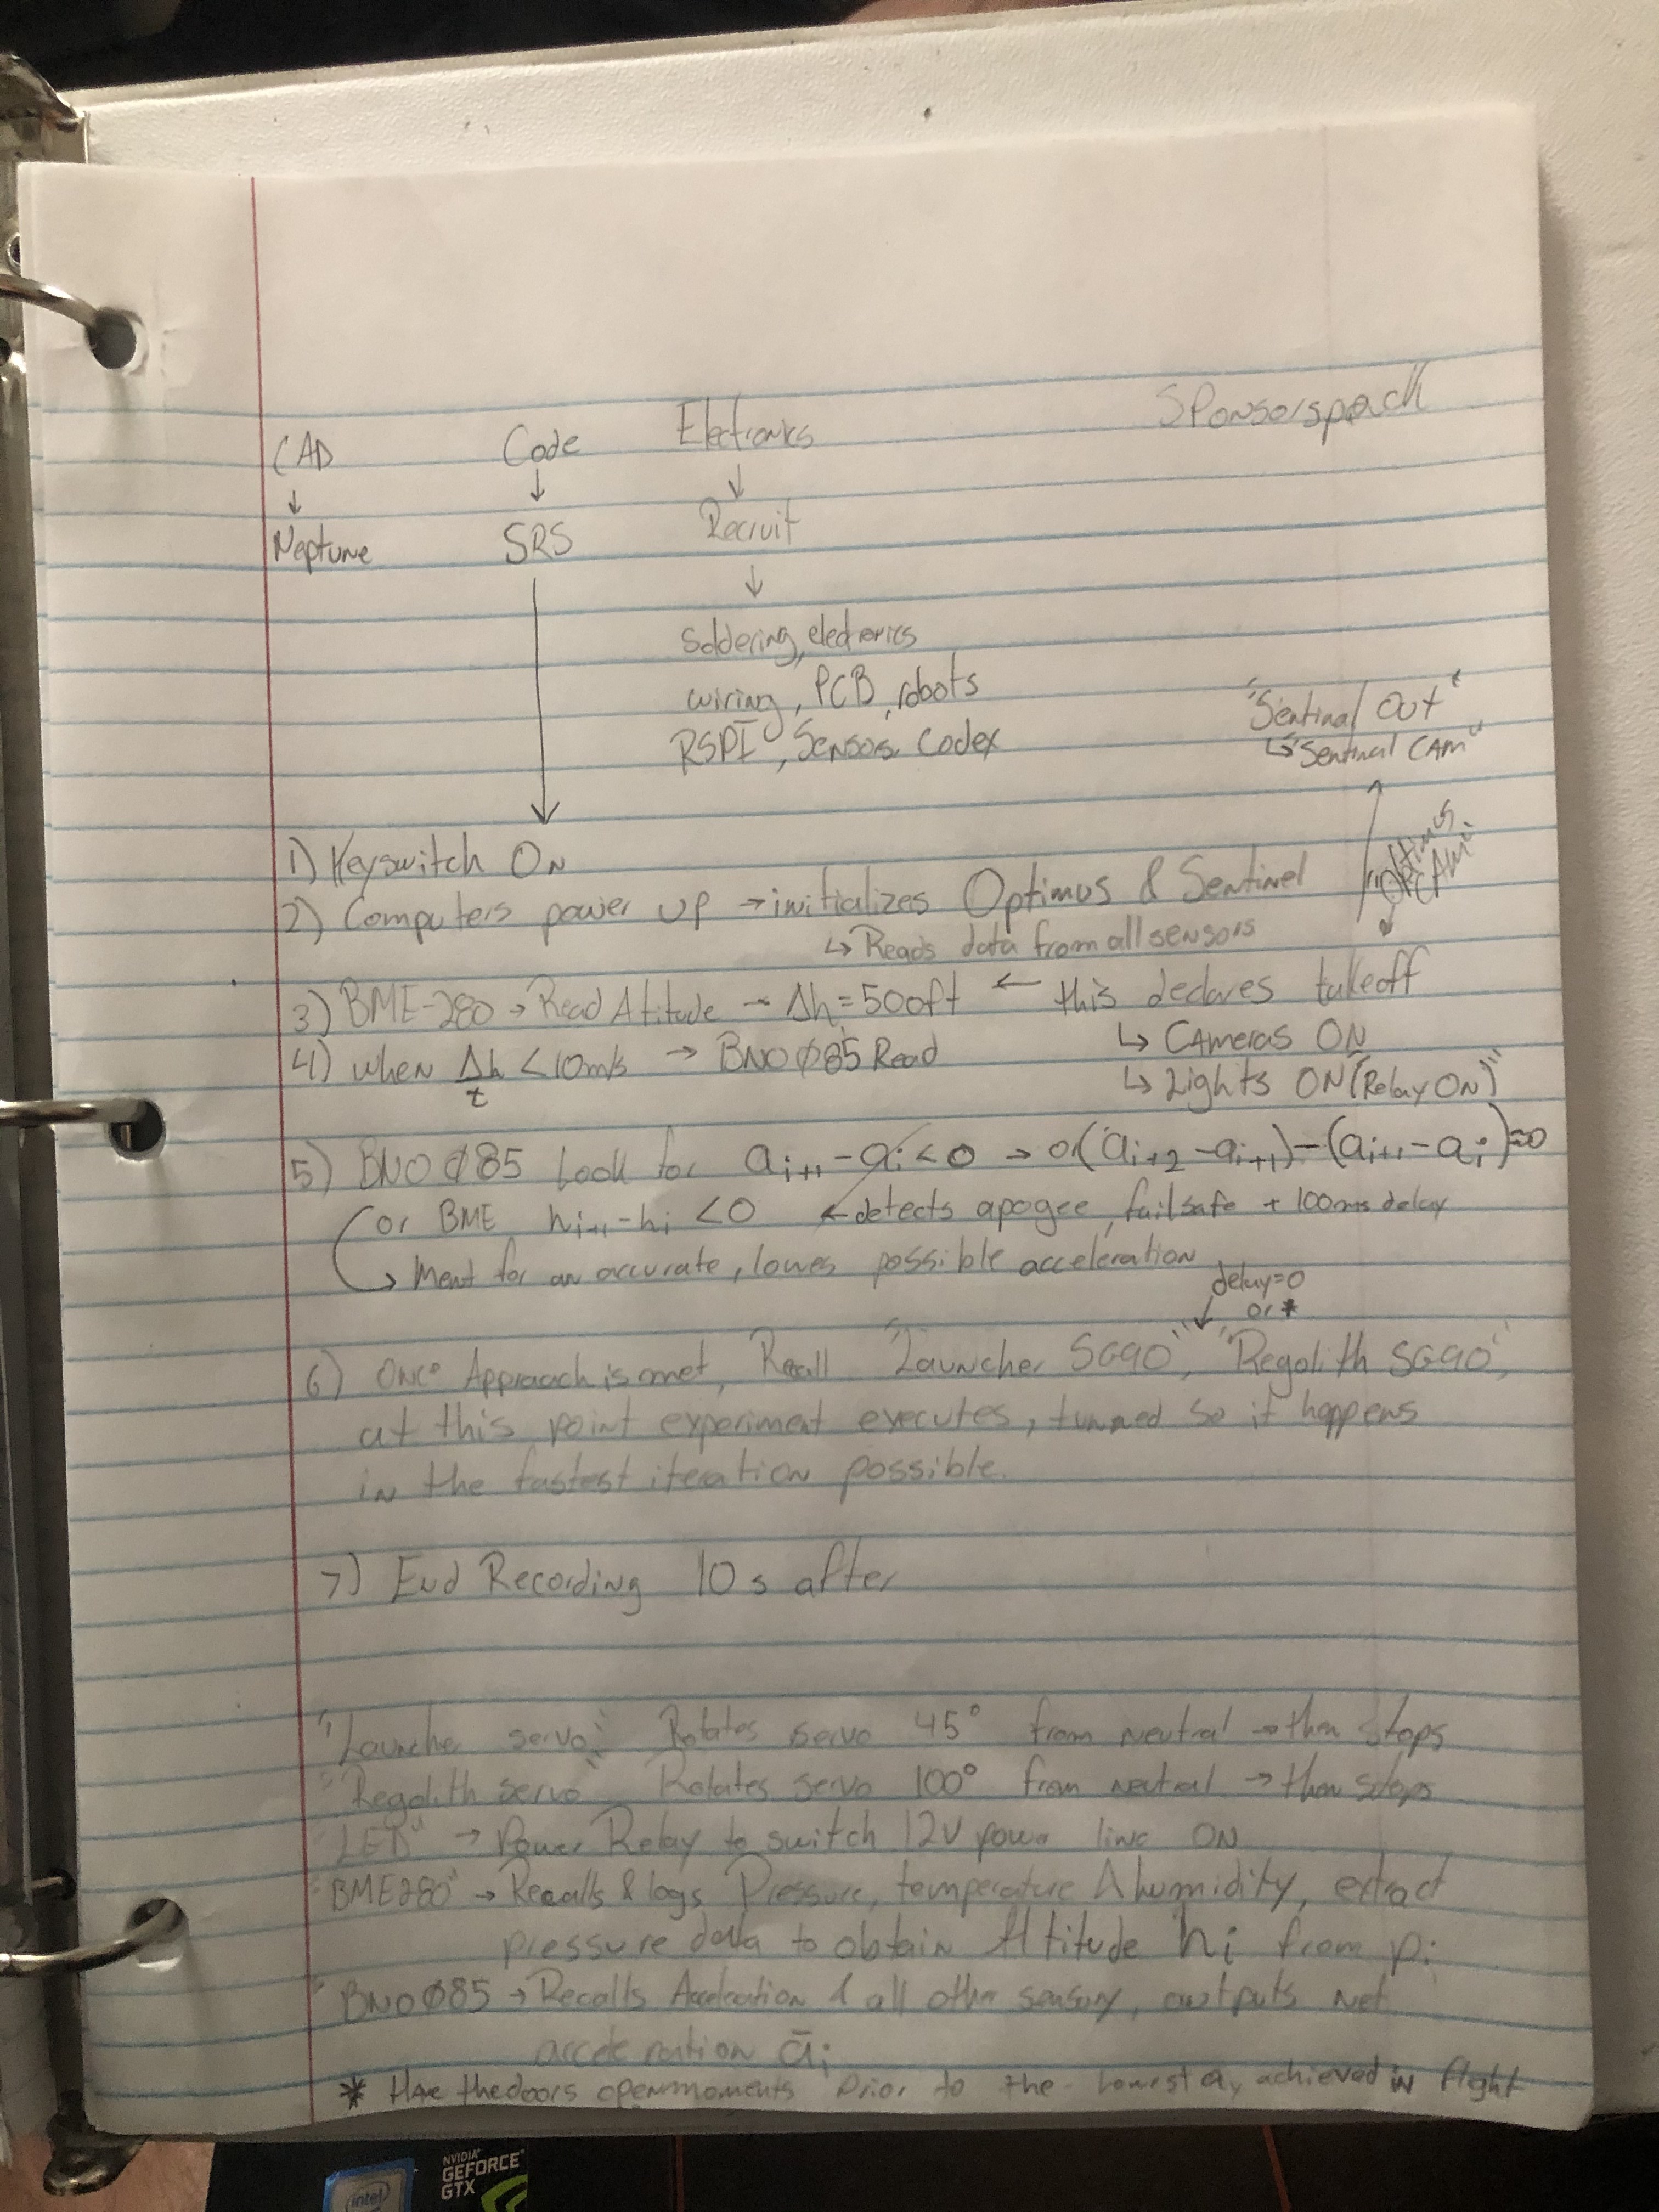 Sponsorspack
CAD Code Electronics
↓ ↓ ↓
Neptune SRS Recruit
↓
Soldering, electronics
wiring, PCB, robots
RSPI, Sensors Codex
"Sentinal Out"
↳ "Sentinal CAM"
"Optimus CAM"
1) Keyswitch ON
2) Computers power up → initializes Optimus & Sentinel
↳ Reads data from all sensors
3) BME-280 → Read Altitude → Δh = 500ft ← this declares takeoff
↳ Cameras ON
4) when Δh/t < 10m/s → BNO085 Read
↳ Lights ON (Relay ON)"
5) BNO085 Look for a i+1 - a i < 0 → or (a i+2 - a i+1) - (a i+1 - a i) ≈ 0
or BME h i+1 - h i < 0 ← detects apogee, failsafe + 100ms delay
↳ Ment for an accurate, lowes possible acceleration
delay=0
or *
6) Once Approach is met, Recall "Launcher SG90", "Regolith SG90",
at this point experiment executes, tunned so it happens
in the fastest iteration possible.
7) End Recording 10s after
"Launcher servo" Rotates servo 45° from neutral → then stops
"Regolith servo" Rotates servo 100° from neutral → then stops
"LED" → Power Relay to switch 12V power line ON
"BME280" → Recalls & logs Pressure, temperature & humidity, extract
pressure data to obtain Altitude h i from p i
"BNO085 → Recalls Acceleration & all other sensory, outputs net
acceleration ā i
* Have the doors open moments prior to the lowest a, achieved in flight
intel
NVIDIA
GEFORCE
GTX